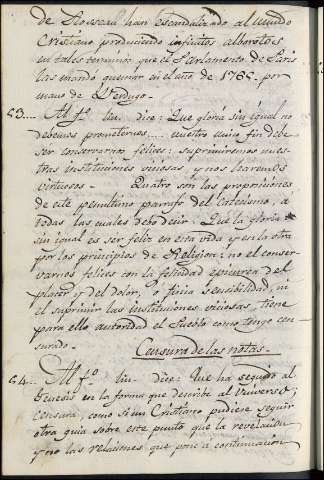 de Rousseau han escandalizado al mundo
Cristiano produciendo infinitos alborotos
en tales terminos que el Parlamento de Paris
las mandó quemar en el año de 1765. por
mano de Verdugo.
53... Al fº. lin. dice: Que gloria sin igual no
debemos prometernos.... nuestro unico fin debe
ser conservarnos felices: suprimiremos nues-
tras instituciones viciosas y nos haremos
virtuosos. Quatro son las proposiciones
de este penultimo parrafo del Catecismo, a
todas las cuales debo decir: Que la gloria
sin igual es ser feliz en esta vida y en la otra
por los principios de Religion: no el conser-
varnos felices con la felicidad epicurea del
placer y del dolor, o fisica sensibilidad, ni
el suprimir las instituciones viciosas, tiene
para ello autoridad el Pueblo como tengo cen-
surado.
Censura de las notas.
54... Al fº. lin. dice: Que ha seguido al
Genesis en la forma que describe al Universo;
censura, como si un Cristiano pudiese seguir
otra guia sobre este punto que la revelacion
y no las relaciones que pone a continuacion